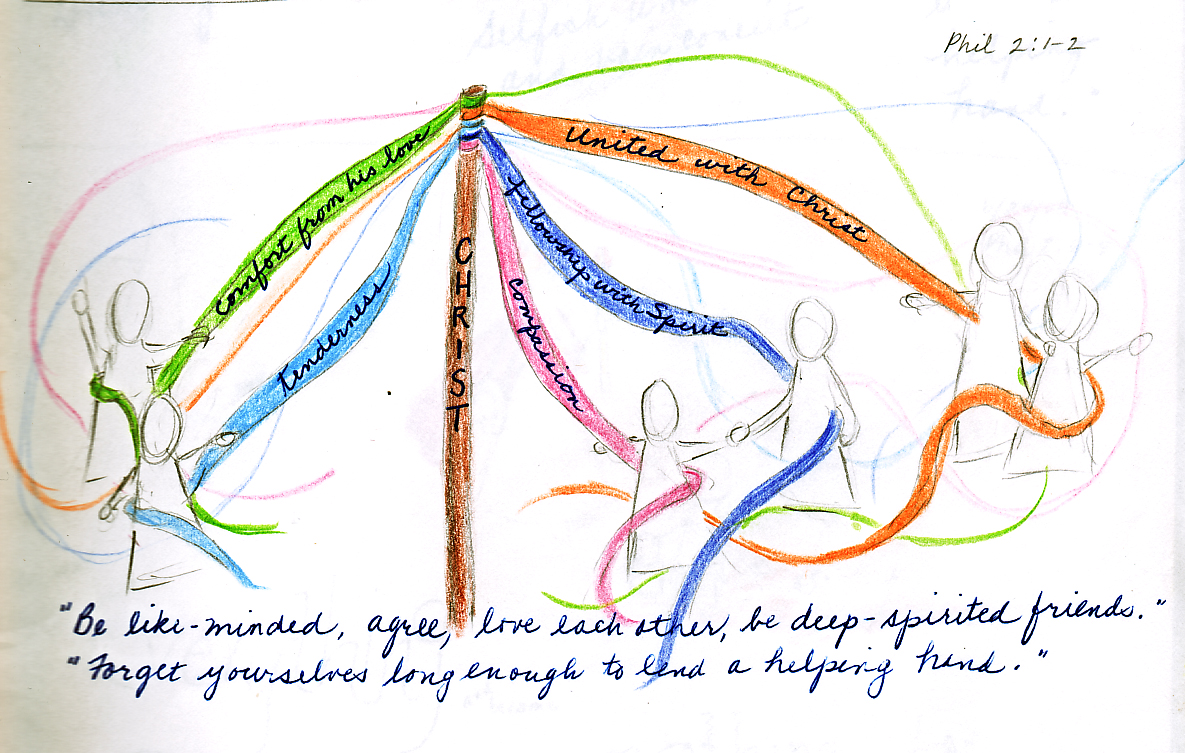 Phil 2:1-2
United with Christ
Comfort from his love
fellowship with Spirit
CHRIST
Tenderness
compassion
"Be like-minded, agree, love each other, be deep-spirited friends."
"Forget yourselves long enough to lend a helping hand."